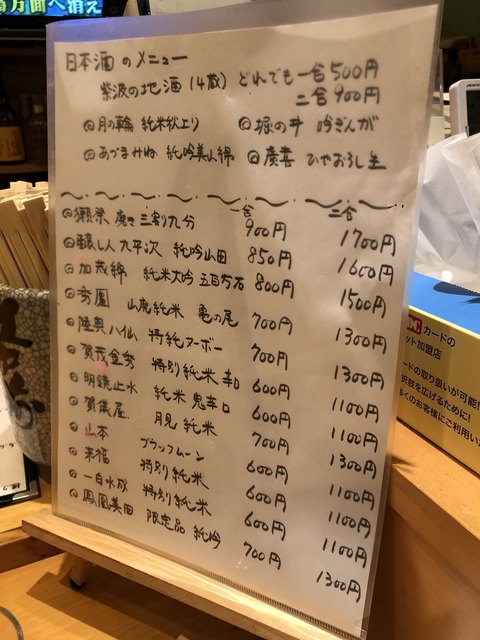 方面へ消え
日本酒のメニュー
紫波の地酒(4蔵) どれでも一合500円
二合900円
◎月の輪 純米秋上り ◎堀の井 吟ぎんが
◎あづまみね 純吟美山錦 ◎廣喜 ひやおろし生
一合 二合
◎獺祭 磨き三割九分 900円 1700円
◎醸し人九平次 純吟山田 850円 1600円
◎加茂錦 純米大吟 五百万石 800円 1500円
◎秀鳳 山廃純米 亀の尾 700円 1300円
◎陸奥八仙 特純ヌーボー 700円 1300円
◎賀茂金秀 特別純米辛口 600円 1100円
◎明鏡止水 純米 鬼辛口 600円 1100円
◎賀儀屋 月見 純米 700円 1300円
◎山本 ブラックムーン 600円 1100円
◎来福 特別純米 600円 1100円
◎一白水成 特別純米 600円 1100円
◎鳳凰美田 限定品 純吟 700円 1300円
カードの
ット加盟店
カードの取り扱いが可能!
択肢を広げるために!
多くのお客様にご利用い